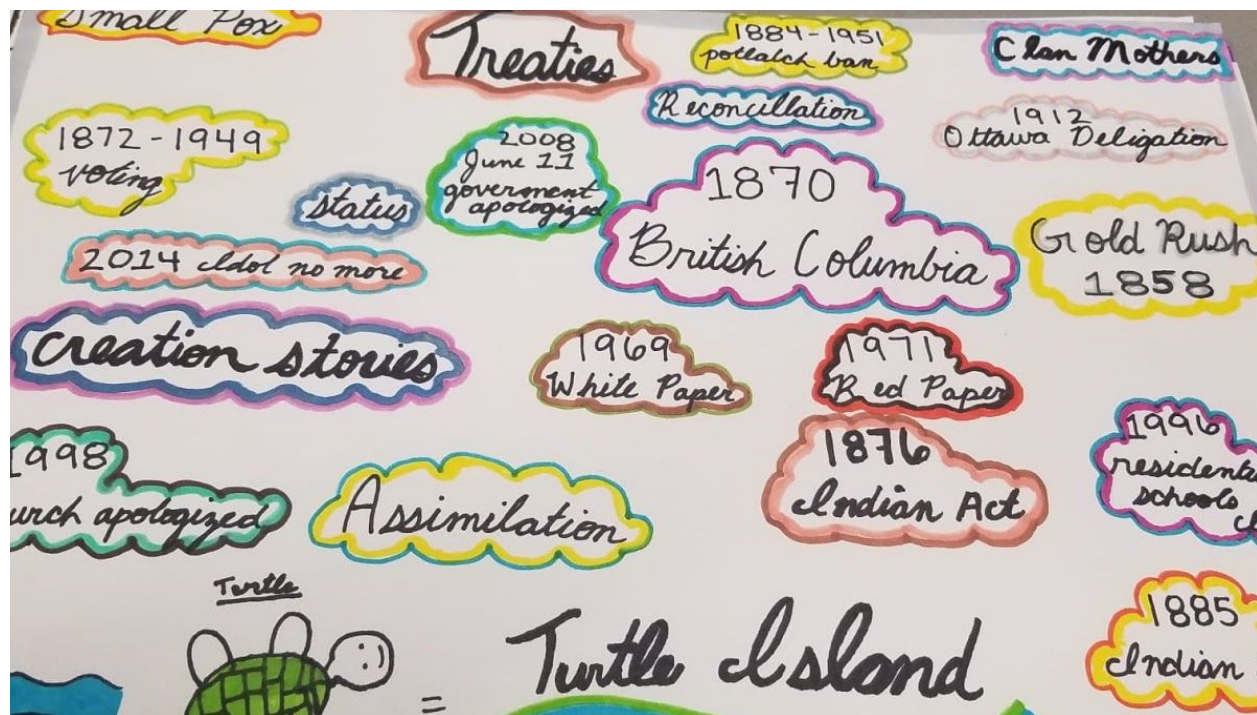 Small Pox
Treaties
1884-1951
potlatch ban
Clan Mothers
Reconcillation
1912
Ottawa Deligation
1872-1949
voting
2008
June 11
goverment
apologized
status
1870
British Columbia
Gold Rush
1858
2014 Idol no more
creation stories
1969
White Paper
1971
Red Paper
1876
Indian Act
1996
residenta
schools
1998
urch apologized
Assimilation
Turtle
=
Turtle Island
1885
Indian